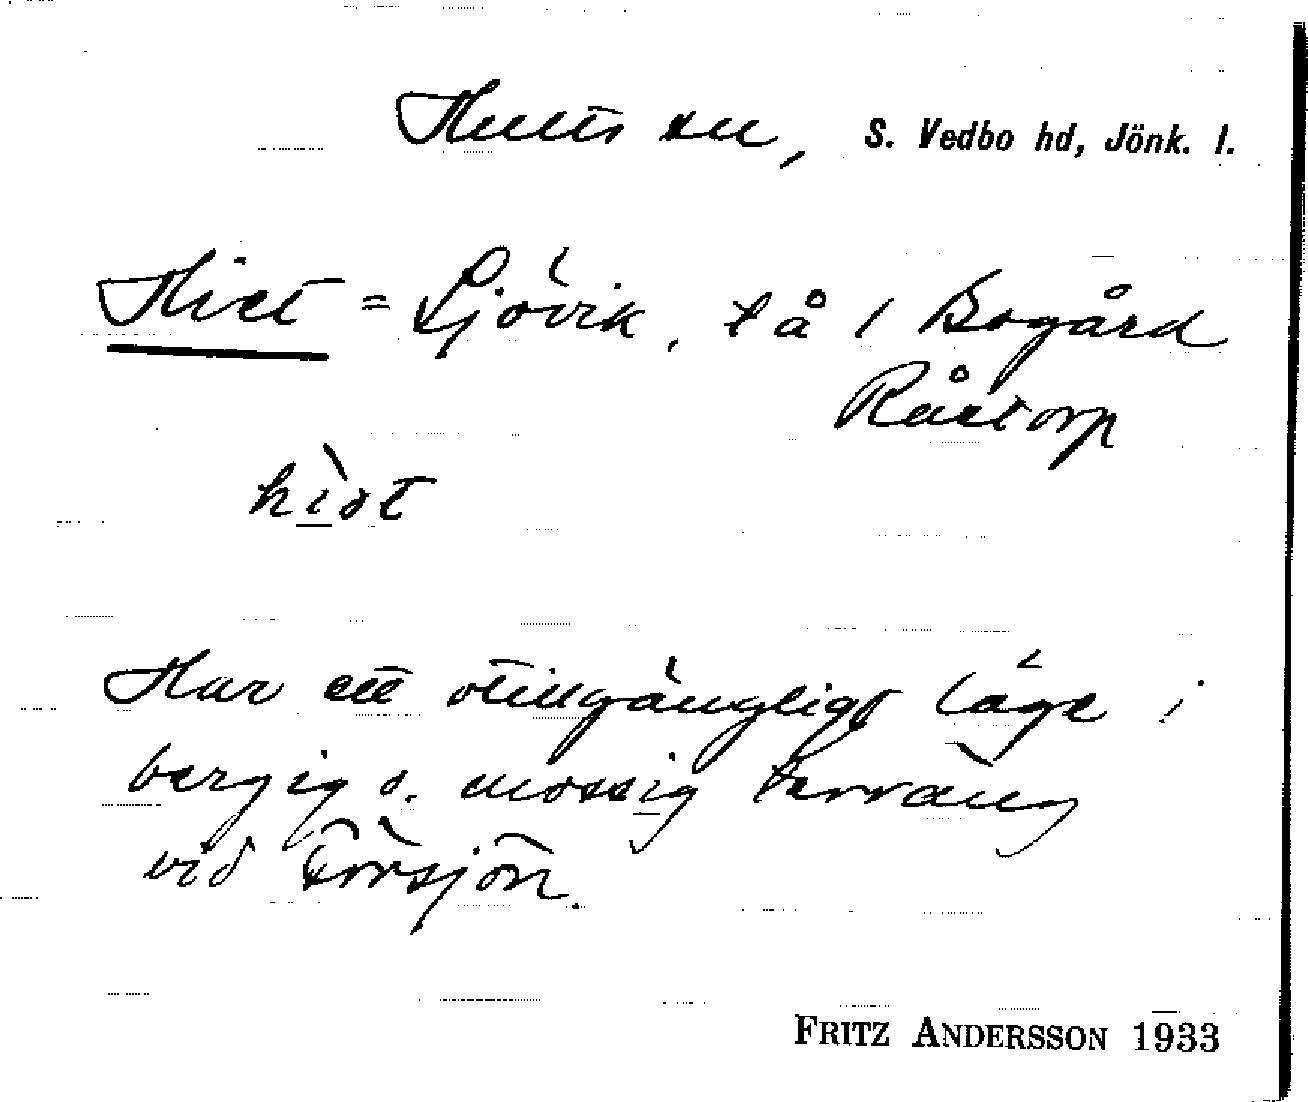 Hults sn, S. Vedbo hd, Jönk. l.
Hiet = Ljövik, lå / Bogård
Råstorp
hìət
Har ett otillgängligt läge i
bergig o. mossig terräng
vid Försjön.
FRITZ ANDERSSON 1933